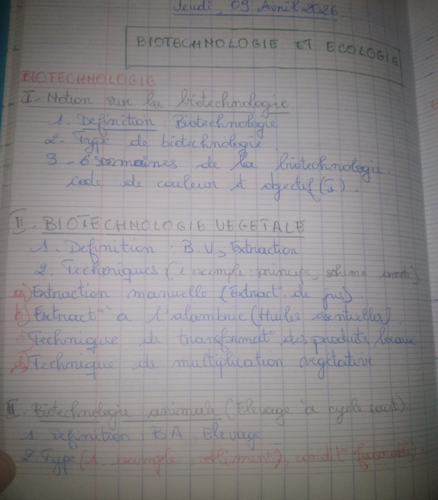 Jeudi, 09 Avril 2026
BIOTECHNOLOGIE ET ECOLOGIE
BIOTECHNOLOGIE
I - Notion sur la biotechnologie
1. Definition : Biotechnologie
2. Type de biotechnologie
3 - domaines de la biotechnologie
code de couleur et objectif(s).
II - BIOTECHNOLOGIE VEGETALE
1. Definition : B.V, Extraction
2. Techniques (1 exemple, principe, schéma annoté)
a) Extraction manuelle (Extract° de jus)
b) Extract° à l'alambic (Huiles essentielles)
c) Technique de transformat° des produits locaux
d) Technique de multiplication végétative
III - Biotechnologie animale (Elevage à cycle court).
1. Definition : BA, Elevage
2. Type (1 exemple, aliment), condit° favorable)